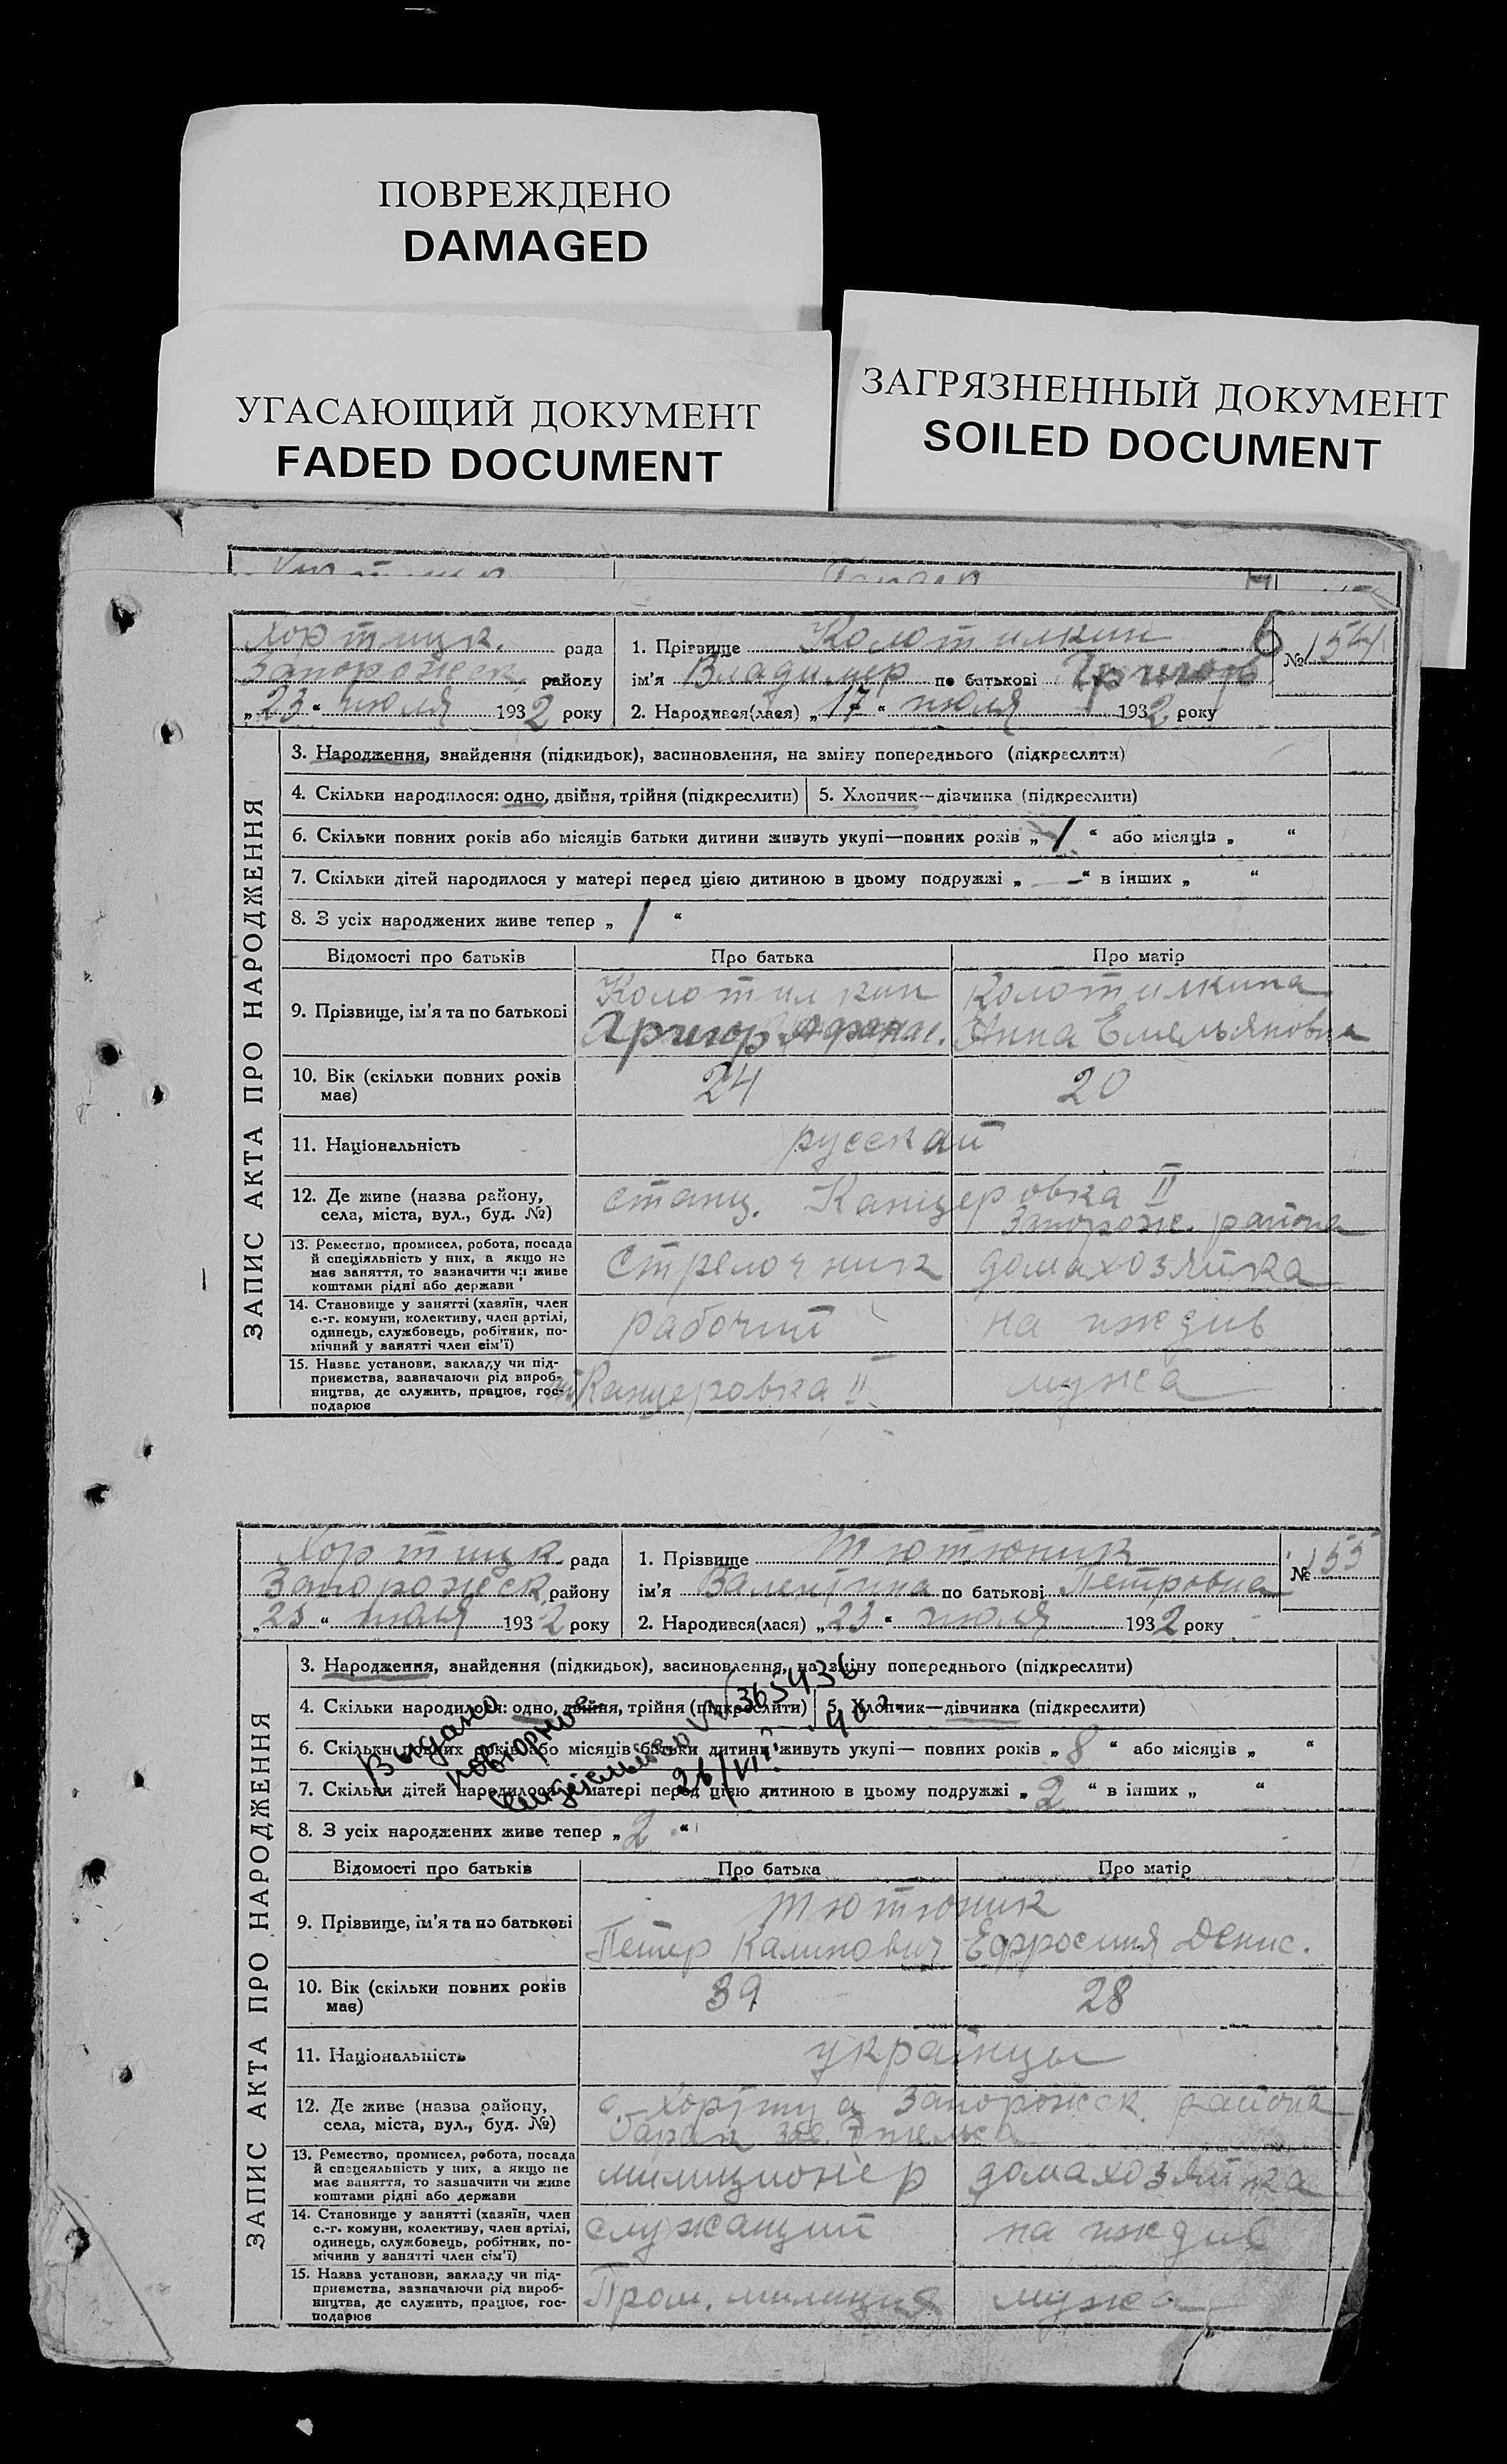 ПОВРЕЖДЕНО
DAMAGED
УГАСАЮЩИЙ ДОКУМЕНТ
FADED DOCUMENT
ЗАГРЯЗНЕННЫЙ ДОКУМЕНТ
SOILED DOCUMENT
Хортицк. рада
Запорожск. району
„23“ июля 1932 року
1. Прізвище Колотилкин
ім'я Владимер по батькові Григор
2. Народився(лася) „17“ июля 1932 року
6
№ 154
ЗАПИС АКТА ПРО НАРОДЖЕННЯ
3. Народження, знайдення (підкидьок), засиновлення, на зміну попереднього (підкреслити)
4. Скільки народилося: одно, двійня, трійня (підкреслити) 5. Хлопчик—дівчинка (підкреслити)
6. Скільки повних років або місяців батьки дитини живуть укупі—повних років „1“ або місяців „ “
7. Скільки дітей народилося у матері перед цією дитиною в цьому подружжі „—“ в інших „ “
8. З усіх народжених живе тепер „1“
Відомості про батьків Про батька Про матір
9. Прізвище, ім'я та по батькові
Колотилкин Колотилкина
Григор Афанас. Анна Емельяновна
10. Вік (скільки повних років
має)
24 20
11. Національність русскай
12. Де живе (назва району,
села, міста, вул., буд. №)
станц. Канцеровка II
Запорож. района
13. Ремество, промисел, робота, посада
й спеціяльність у них, а якщо не
має заняття, то зазначити чи живе
коштами рідні або держави
Стрелочник домахозяйка
14. Становище у занятті (хазяїн, член
с.-г. комуни, колективу, член артілі,
одинець, службовець, робітник, по-
мічний у занятті член сім'ї)
рабочий на иждив
15. Назва установи, закладу чи під-
приємства, зазначаючи рід вироб-
ництва, де служить, працює, гос-
подарює
Канцеровка II мужа
Хортицк. рада
Запорожск району
„25“ июля 1932 року
1. Прізвище Тютюник
ім'я Валентина по батькові Петровна
2. Народився(лася) „23“ июля 1932 року
№ 155
ЗАПИС АКТА ПРО НАРОДЖЕННЯ
3. Народження, знайдення (підкидьок), засиновлення, на зміну попереднього (підкреслити)
4. Скільки народилося: одно, двійня, трійня (підкреслити) 5. Хлопчик—дівчинка (підкреслити)
6. Скільки повних років або місяців батьки дитини живуть укупі— повних років „8“ або місяців „ “
7. Скільки дітей народилося у матері перед цією дитиною в цьому подружжі „2“ в інших „ “
8. З усіх народжених живе тепер „2“
Видано
повторне
365436
26/VII
Відомості про батьків Про батька Про матір
9. Прізвище, ім'я та по батькові
Тютюник
Петер Калинович Ефросиния Денис.
10. Вік (скільки повних років
має)
39 28
11. Національність украінцы
12. Де живе (назва району,
села, міста, вул., буд. №)
с. Хортица Запорожск. района
барак
13. Ремество, промисел, робота, посада
й спецсяльність у них, а якщо не
має заняття, то зазначити чи живе
коштами рідні або держави
милиционер домахозяйка
14. Становище у занятті (хазяїн, член
с.-г. комуни, колективу, член артілі,
одинець, службовець, робітник, по-
мічнив у занятті член сім'ї)
служащий на иждив
15. Назва установи, закладу чи під-
приємства, зазначаючи рід вироб-
ництва, де служить, працює, гос-
подарює
Пром. милиция мужа